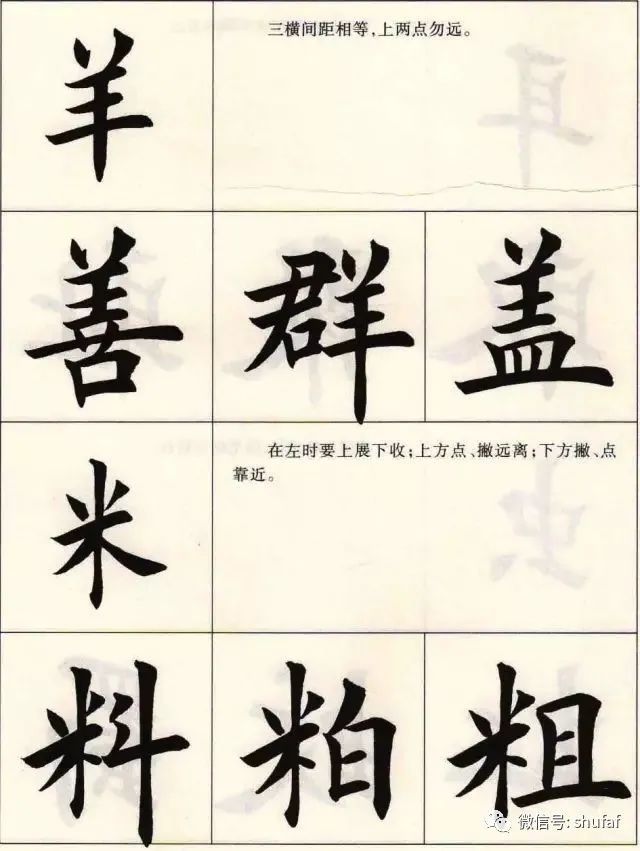 羊
三横间距相等,上两点勿远。
善 群 盖
米
在左时要上展下收;上方点、撇远离;下方撇、点
靠近。
料 粕 粗
微信号: shufaf